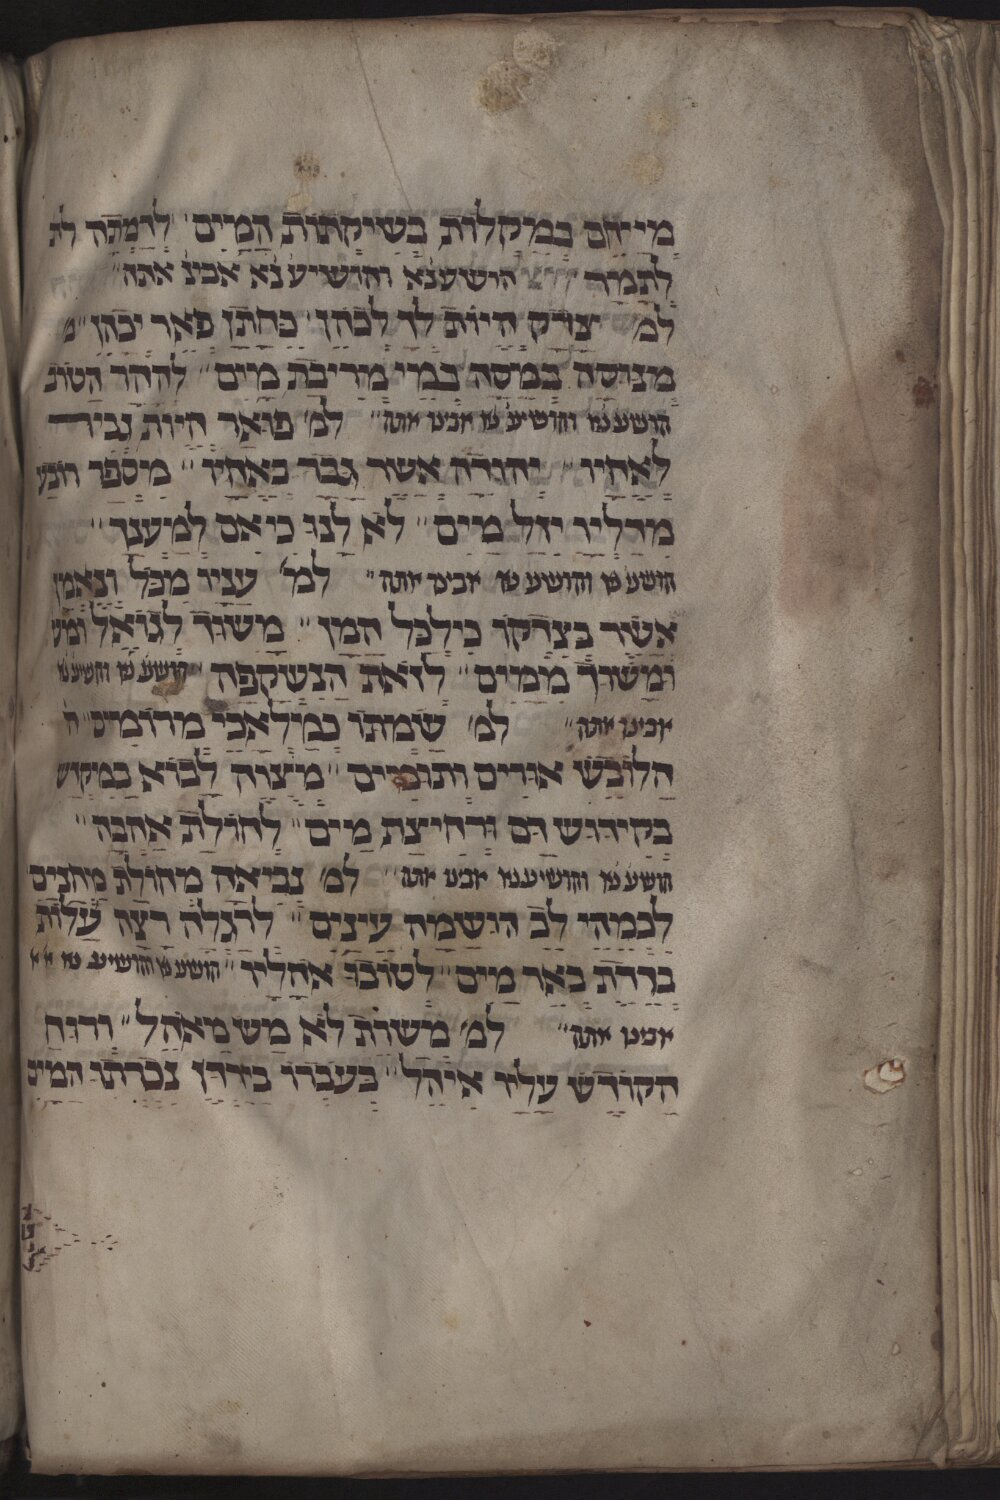 מייחם במקלות בשיקתות המים׳ לדמתה לת
לתמר הושיענא והושיע נא אבינ׳ אתה״
למ׳ יצדק היות לך לכהן׳ כחתן פאר יכהן״ מ׳
מנוסה במסה במי מריבת מים״ לההר הטוב
הושע נא והושיע נא אבינו אתה״ למ׳ פואר היות גביר
לאחיו״ יהודה אשר גבר באחיו״ מספר רובע
מדליו יזל מים״ לא לנו כי אם למענך״
הושע נא והושע נא אבינו אתה״ למ׳ עניו מכל ונאמן
אשר בצדקו כילכל המן״ משוך לגואל ומש
ומשוך ממים״ לזאת הנשקפה הושע נא והושיע נא
אבינו אתה״ למ׳ שמתו כמלאכי מרומים״ ה
הלובש אורים ותומים״ מצוה לבוא במקדש
בקידוש דם ורחיצת מים״ לחולת אהבה״
הושע נא והושיע נא אבינו אתה״ למ׳ נביאה מחולת מחנים
לכמהי לב הושמה עינים״ לרגלה רצה עלות
ברדת באר מים״ לטובו אהליו״ הושע נא והושיע נא א׳ א׳
אבינו אתה״ למ׳ משרת לא מש מאהל״ ורוח
הקודש עליו איהל״ בעברו בירדן נכרתו המים